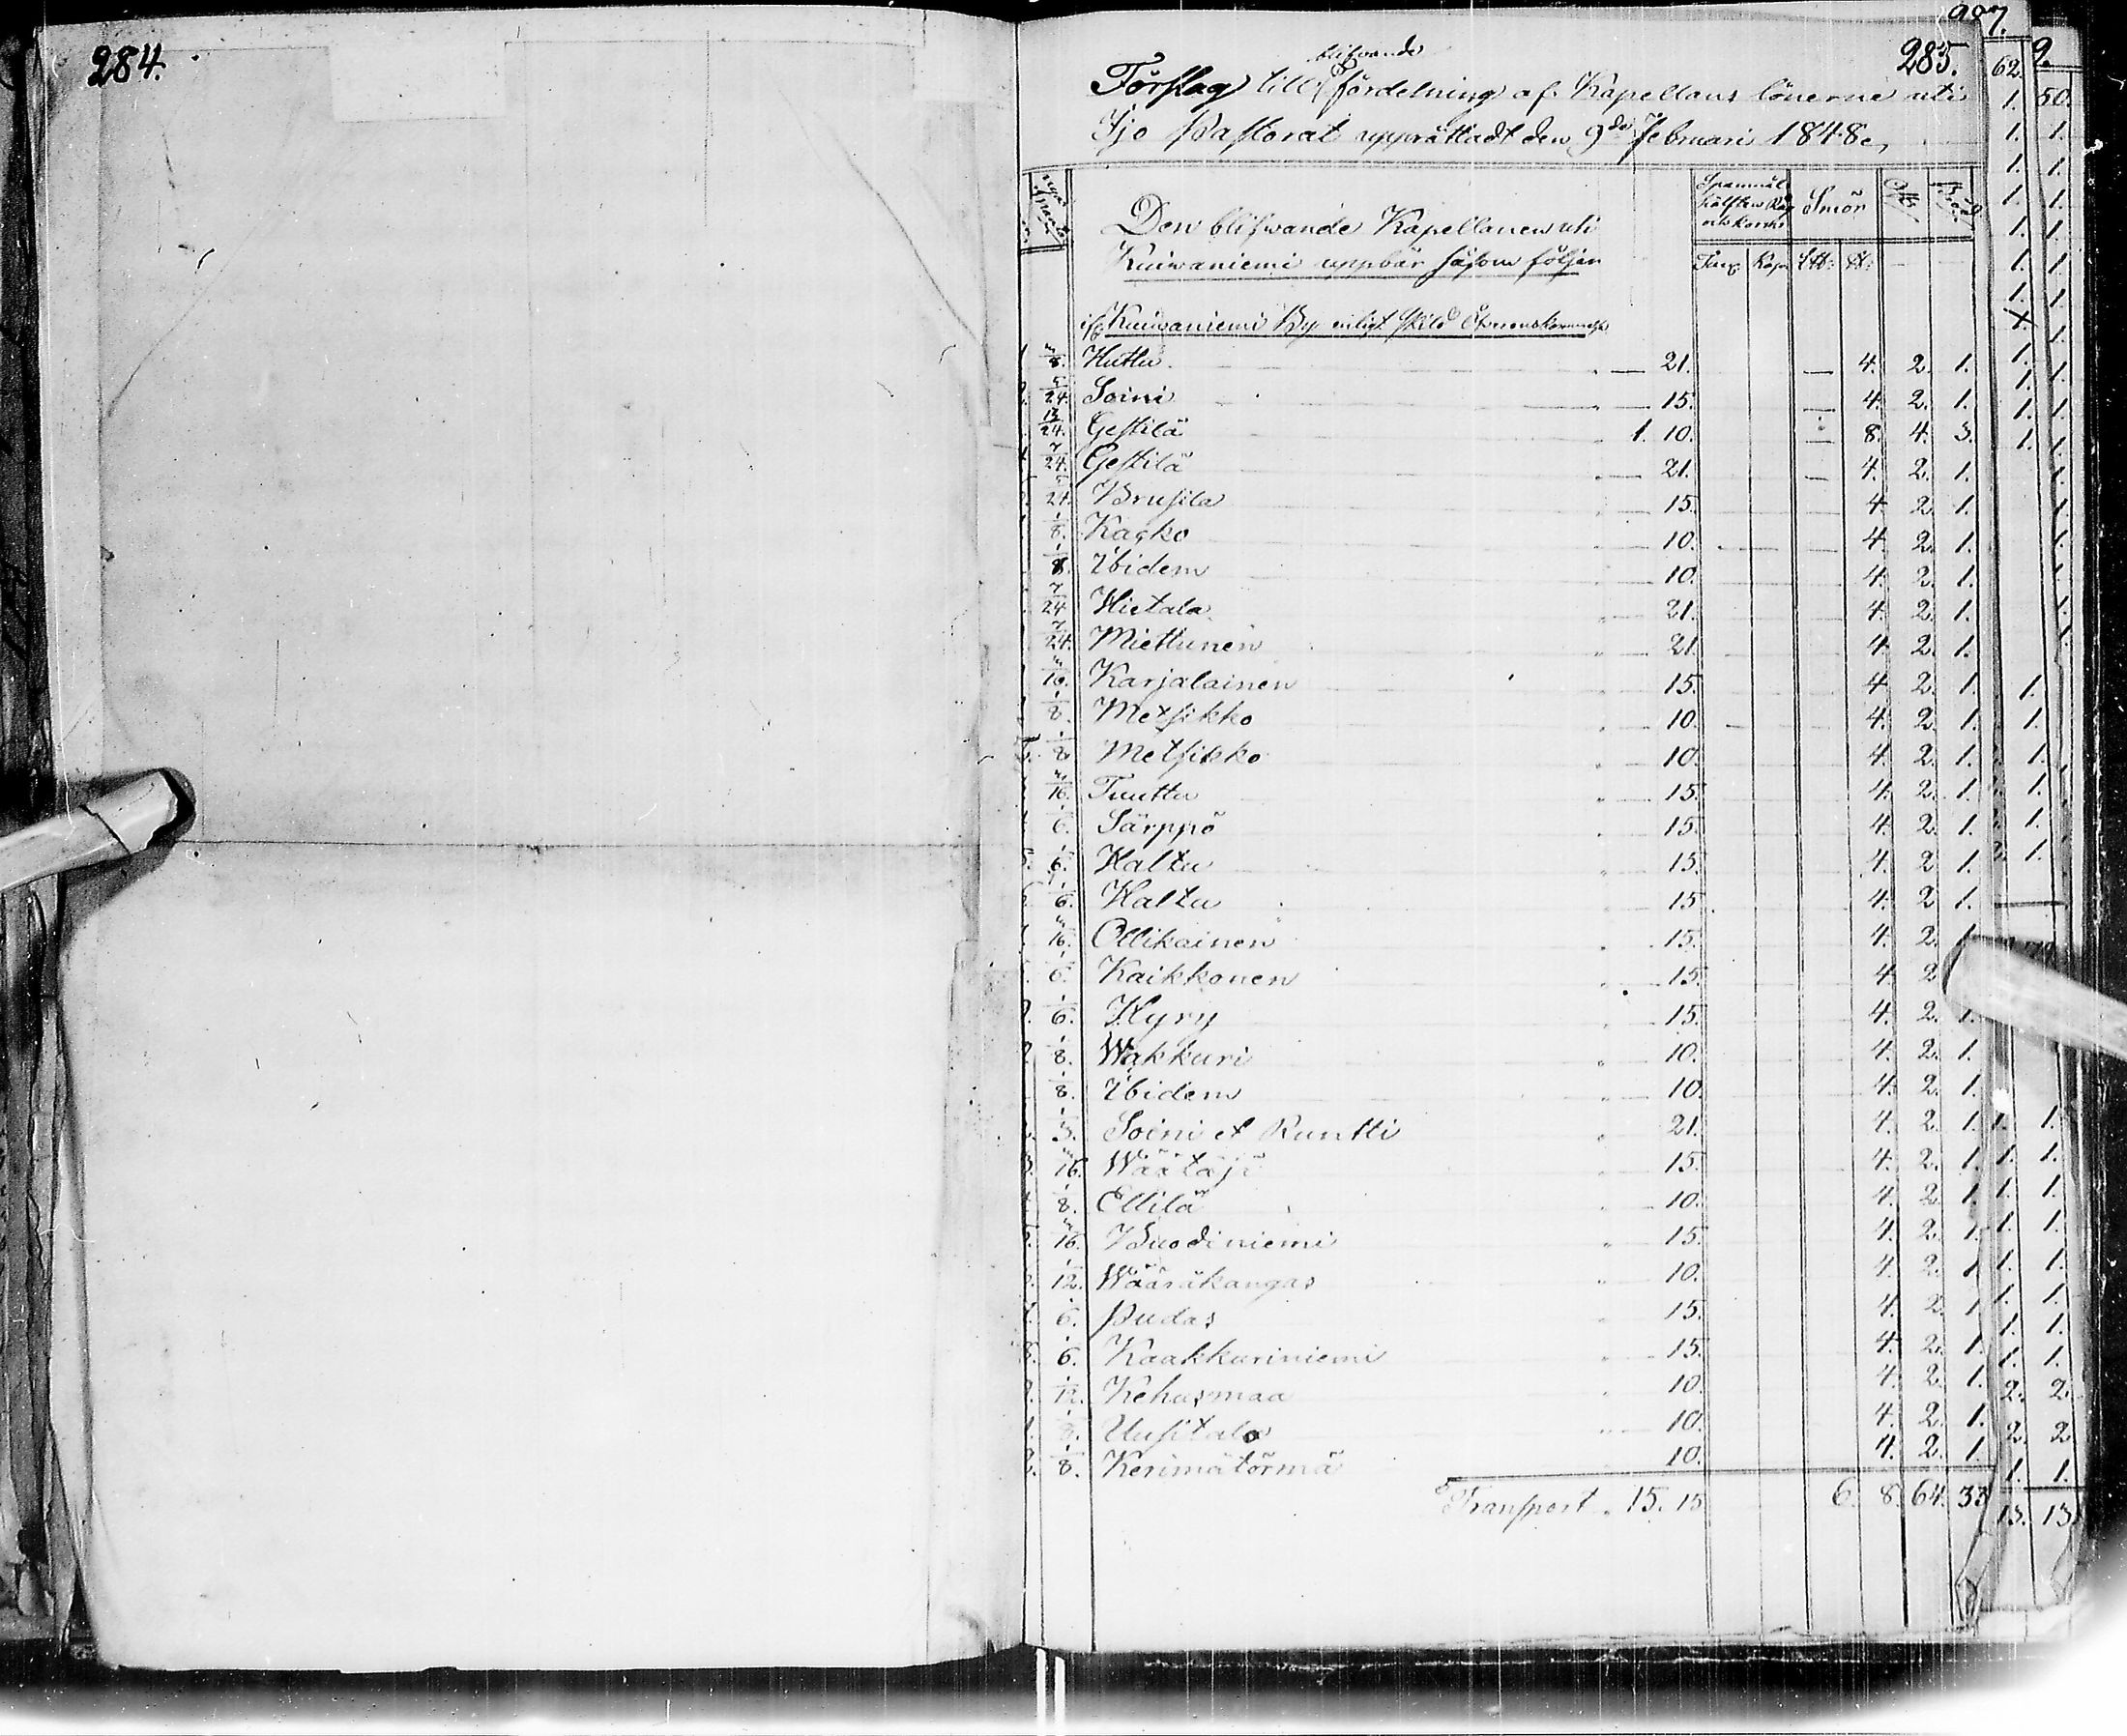 284.
285.
blifvande
Förslag till fördelning af Kapellans lönerne uti
Ijo Pastorat upprättadt den 9de Februari 1848.
Den blifwande Kapellanen uti
Kuiwaniemi uppbär såsom följer
Spannmål hälften Råg och korn
Smör
Tunn. Kapp. L℔. ℔.
Kuiwaniemi By enligt
3/8. Huttu — 21. — 4. 2. 1.
5/24. Soini — 15. — 4. 2. 1.
13/24. Gestilä 1. 10. — 8. 4. 3.
7/24. Gestilä — 21. — 4. 2. 1.
5/24. Brusila — 15. 4. 2. 1.
1/8. Kasko — 10. — 4. 2. 1.
1/8. Ibidem — 10. 4. 2. 1.
7/24 Hietala — 21. 4. 2. 1.
7/24. Miettunen — 21. 4. 2. 1.
3/16. Karjalainen — 15. 4. 2. 1.
1/8. Metsikko — 10. 4. 2. 1.
1/8 Metsikko — 10. 4. 2. 1.
3/16. Tuuttu — 15. 4. 2. 1.
1/6. Särppö — 15. 4. 2. 1.
1/6. Haltu — 15. 4. 2 1.
1/6. Haltu — 15 4. 2 1.
3/16. Ollikainen — 15. 4. 2. 1.
1/6. Kaikkonen — 15. 4. 2
1/6. Hyry — 15. 4. 2. 1.
1/8. Wakkuri — 10. 4. 2. 1.
1/8. Ibidem — 10. 4. 2. 1.
1/3. Soini et Runtti 21. 4. 2. 1.
3/16. Wäätäjä 15. 4. 2. 1.
1/8. Ellilä — 10. 4. 2. 1.
3/16. Buodiniemi — 15. 4. 2. 1.
1/12. Wääräkangas — 10. 4. 2. 1
1/6. Pudas 15. 4. 2. 1
1/6. Kaakkuriniemi — 15. 4. 2. 1.
1/12. Kehusmaa 10. 4. 2. 1.
1/8. Uusitalo — 10. 4. 2. 1.
1/8. Kerimätörmä 10. 4. 2. 1.
Transport 15. 15 6. 8. 64. 33